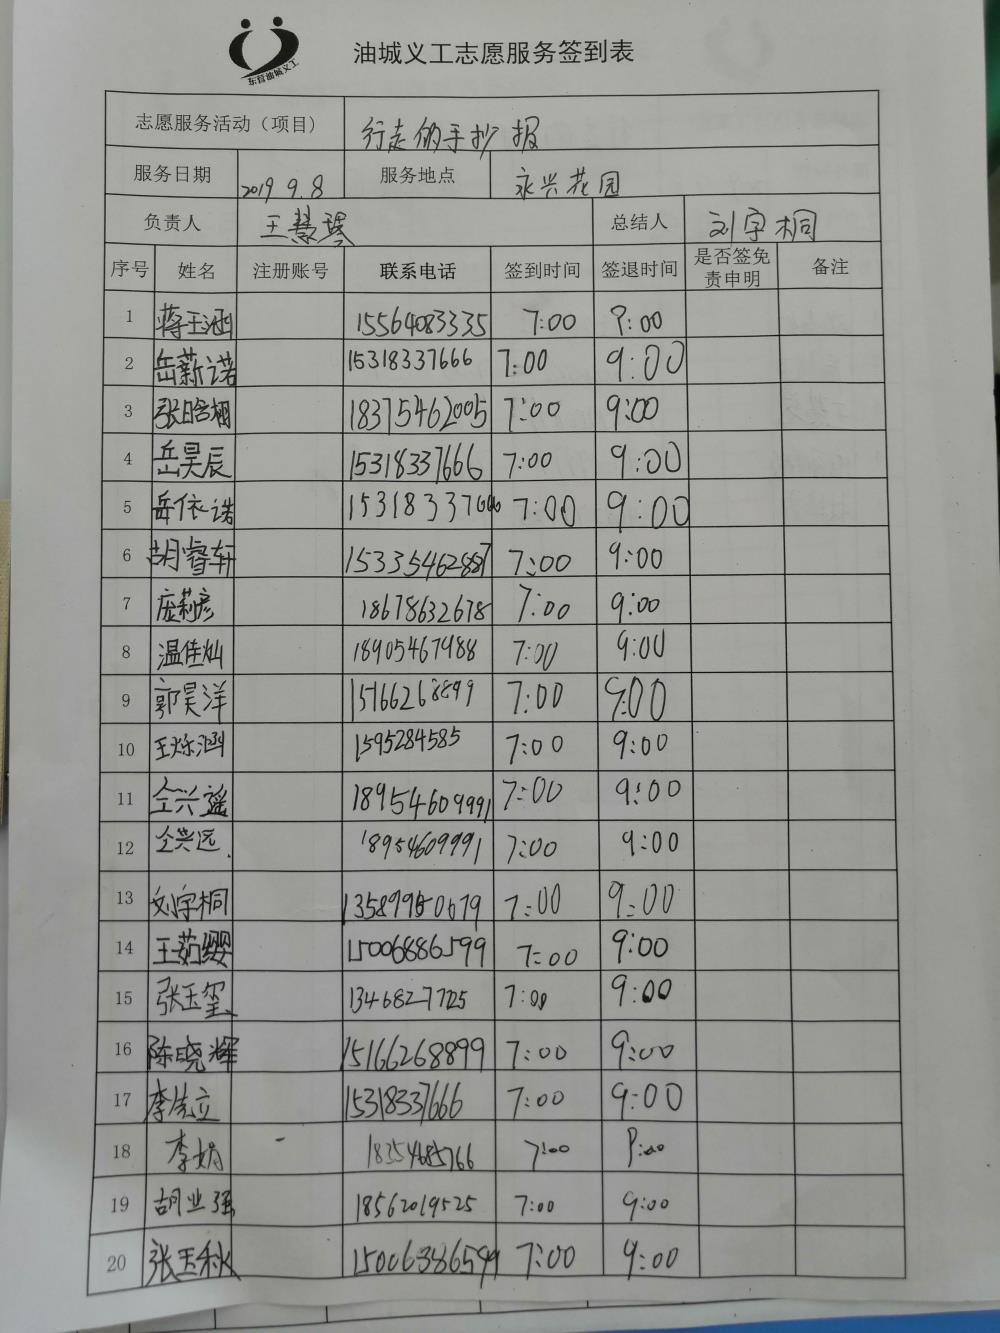 东营油城义工
油城义工志愿服务签到表
志愿服务活动（项目） 行走的手抄报
服务日期 2019 9.8 服务地点 永兴花园
负责人 王慧琴 总结人 刘宇桐
序号 姓名 注册账号 联系电话 签到时间 签退时间 是否签免责申明 备注
1 蒋玉涵 15564083335 7:00 9:00
2 岳薪诺 15318337666 7:00 9:00
3 张晧栩 18375462005 7:00 9:00
4 岳昊辰 15318337666 7:00 9:00
5 岳依诺 15318337666 7:00 9:00
6 胡睿轩 15335462887 7:00 9:00
7 庞莉彦 18678632678 7:00 9:00
8 温佳灿 18905467988 7:00 9:00
9 郭昊洋 15166268899 7:00 9:00
10 王烁涵 1595284585 7:00 9:00
11 仝兴遥 18954609991 7:00 9:00
12 仝兴远. 18954609991 7:00 9:00
13 刘宇桐 7:00 9:00
14 王茹缨 15006886599 7:00 9:00
15 张玉玺 1346827725 7:00 9:00
16 陈晓辉 15166268899 7:00 9:00
17 李先立 15318337666 7:00 9:00
18 李娟 - 18354685766 7:00 9:00
19 胡业强 18562019525 7:00 9:00
20 张玉秋 15006386599 7:00 9:00